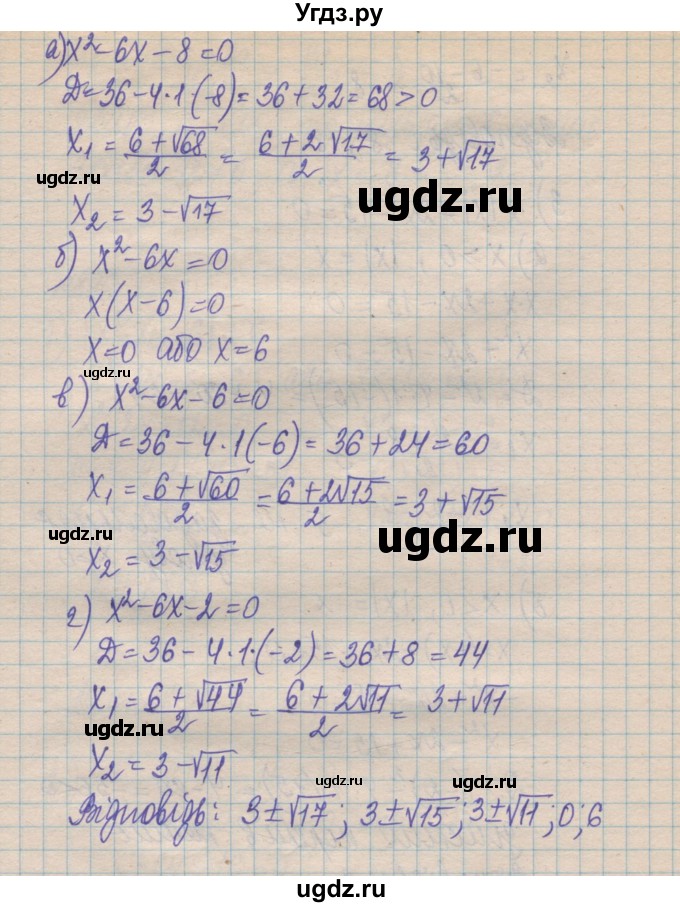 Угдз.ру
а) x² - 6x - 8 = 0
D = 36 - 4·1(-8) = 36 + 32 = 68 > 0
x₁ = (6 + √68)/2 = (6 + 2√17)/2 = 3 + √17
ugdz.ru
ugdz.ru
x₂ = 3 - √17
б) x² - 6x = 0
x(x - 6) = 0
x = 0 або x = 6
ugdz.ru
в) x² - 6x - 6 = 0
D = 36 - 4·1(-6) = 36 + 24 = 60
x₁ = (6 + √60)/2 = (6 + 2√15)/2 = 3 + √15
ugdz.ru
ugdz.ru
x₂ = 3 - √15
г) x² - 6x - 2 = 0
D = 36 - 4·1·(-2) = 36 + 8 = 44
x₁ = (6 + √44)/2 = (6 + 2√11)/2 = 3 + √11
ugdz.ru
x₂ = 3 - √11
ugdz.ru
ugdz.ru
Відповідь: 3 ± √17; 3 ± √15; 3 ± √11; 0; 6
ugdz.ru
ugdz.ru